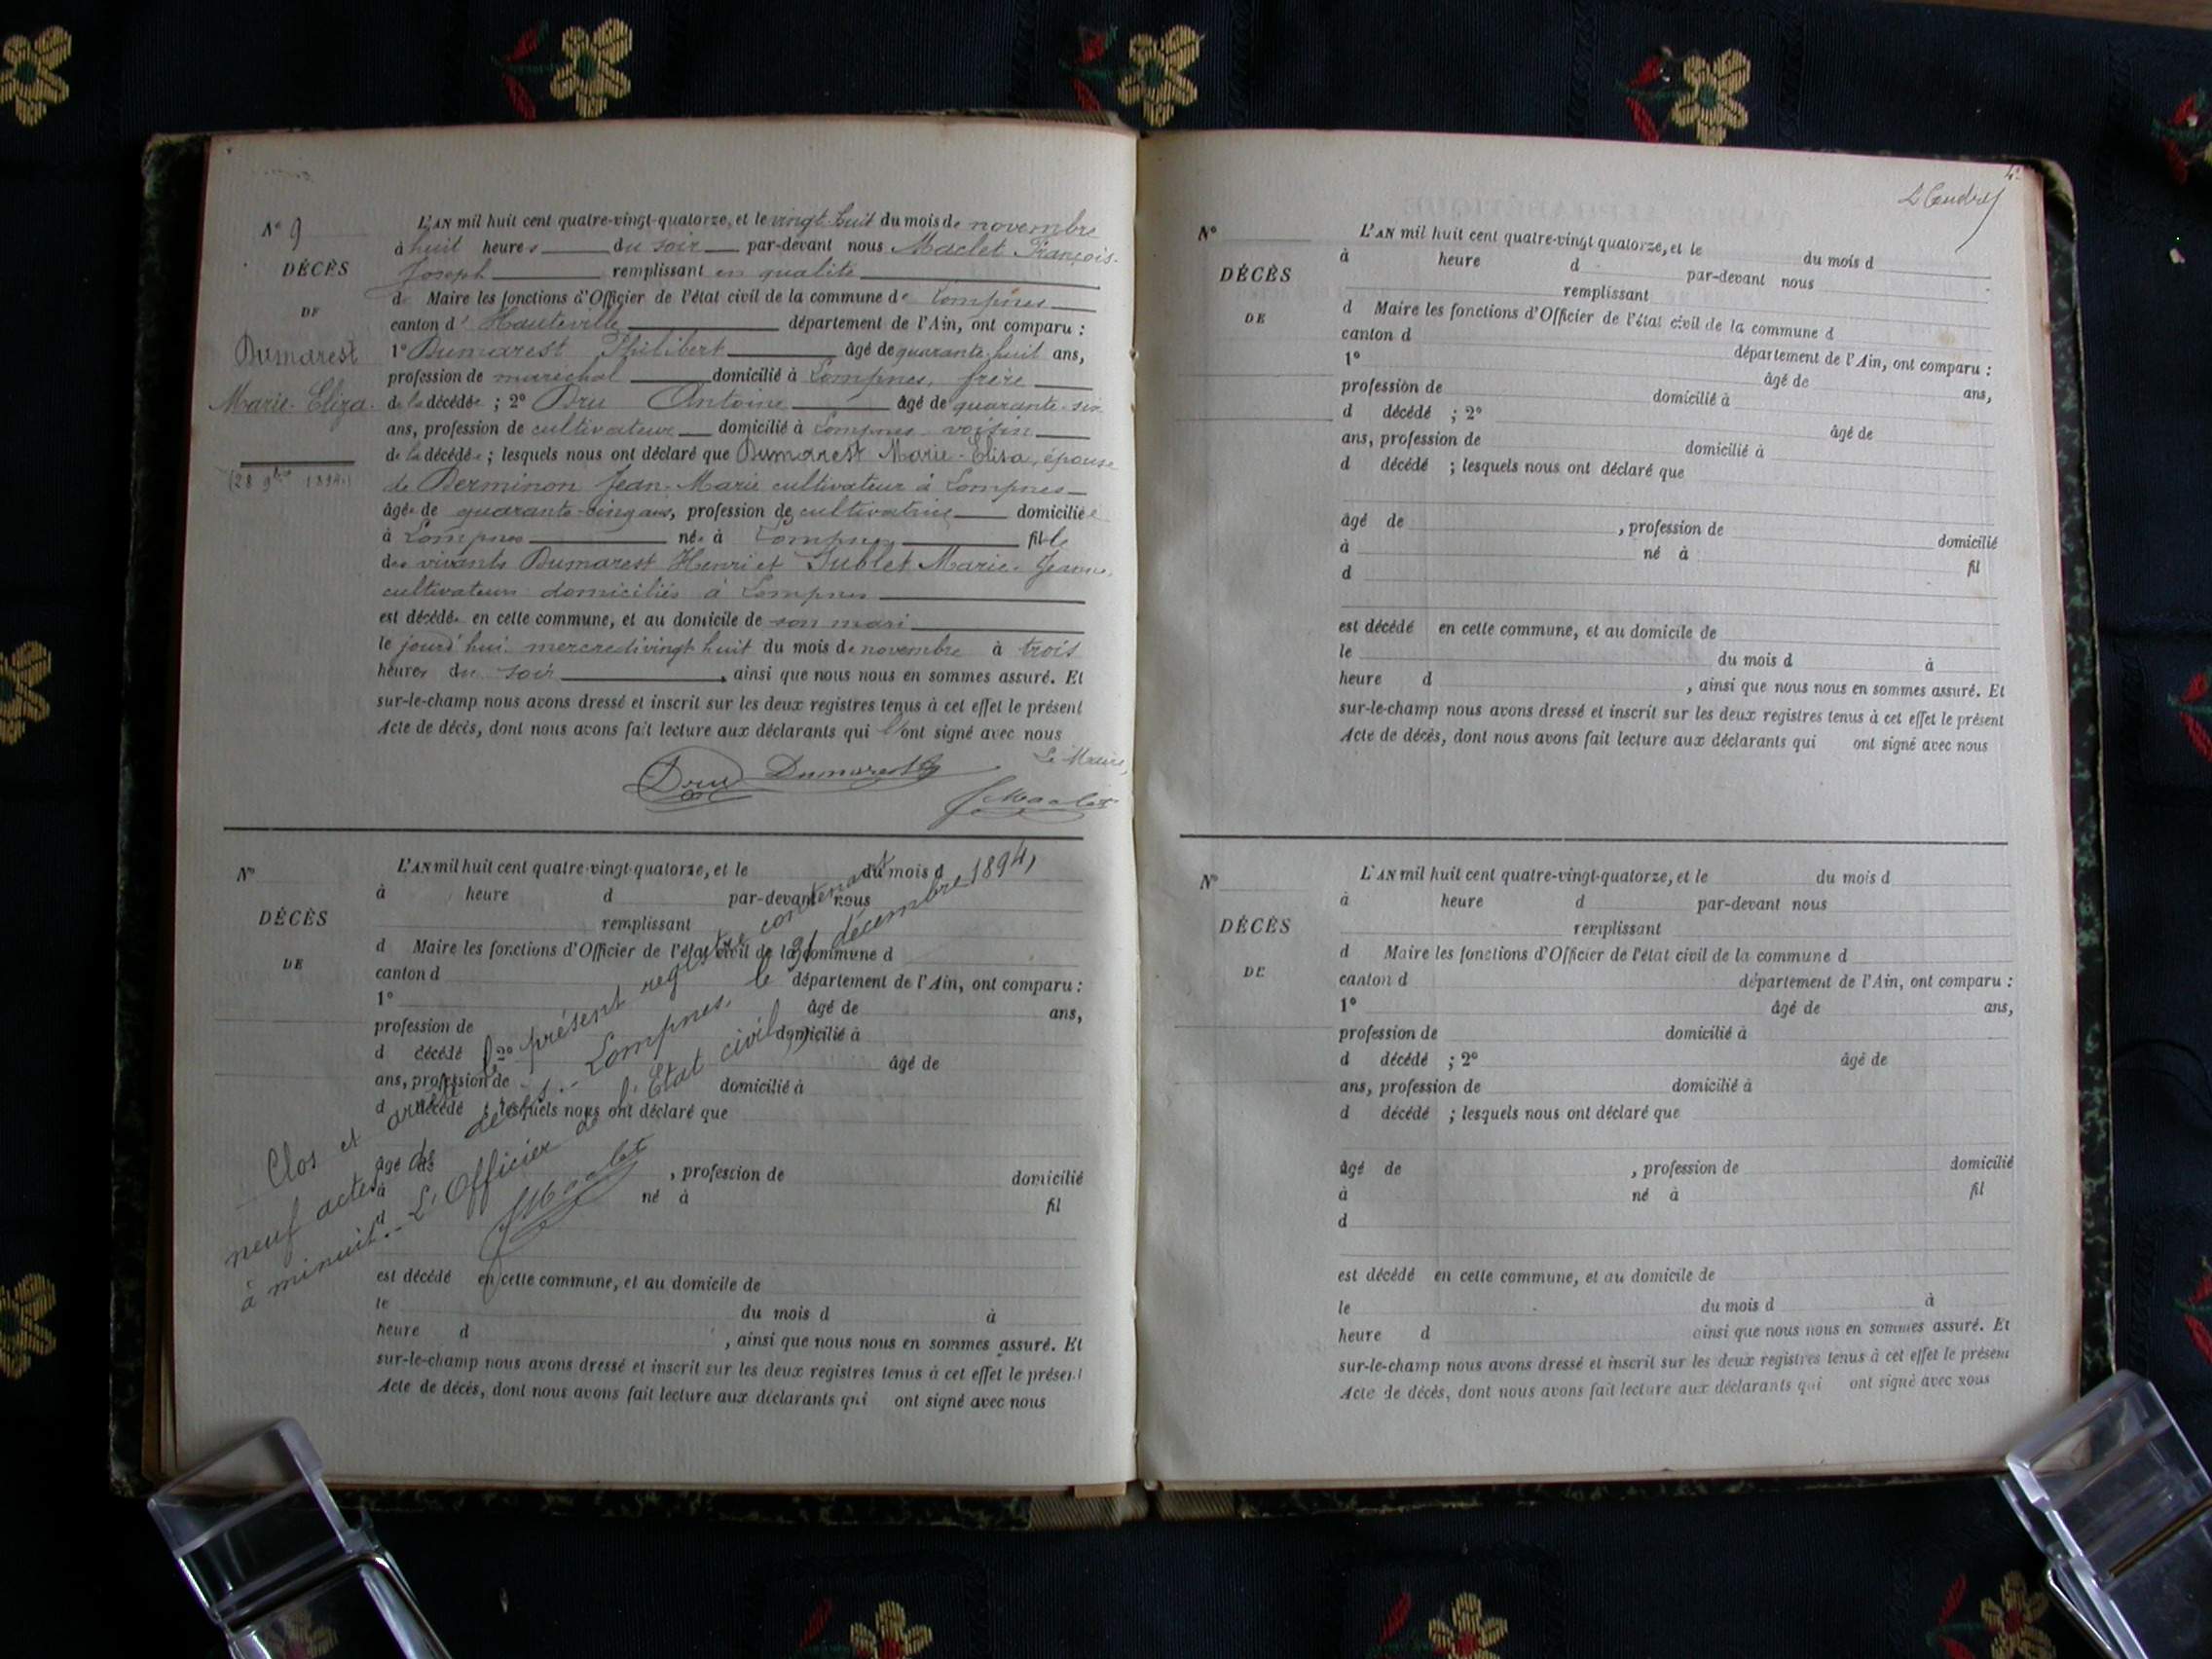 N° 9
DÉCÈS
DE
Dumarest
Marie-Eliza.
(28 9bre 1894)
L'AN mil huit cent quatre-vingt-quatorze, et le vingt-huit du mois de novembre
à huit heures du soir par-devant nous Maclet François-
Joseph remplissant en qualité
de Maire les fonctions d'Officier de l'état civil de la commune de Lompnes
canton d' Hauteville département de l'Ain, ont comparu :
1° Dumarest Philibert âgé de quarante-huit ans,
profession de maréchal domicilié à Lompnes, frère
de la décédée ; 2° Dru Antoine âgé de quarante-six
ans, profession de cultivateur domicilié à Lompnes voisin
de la décédée ; lesquels nous ont déclaré que Dumarest Marie-Elisa, épouse
de Berminon Jean-Marie cultivateur à Lompnes
âgée de quarante-cinq ans, profession de cultivatrice domiciliée
à Lompnes née à Lompnes fille
des vivants Dumarest Henri et Jublet Marie-Jeanne,
cultivateurs domiciliés à Lompnes
est décédée en cette commune, et au domicile de son mari
le jourd'hui mercredi vingt huit du mois de novembre à trois
heures du soir, ainsi que nous nous en sommes assuré. Et
sur-le-champ nous avons dressé et inscrit sur les deux registres tenus à cet effet le présent
Acte de décès, dont nous avons fait lecture aux déclarants qui l'ont signé avec nous
Le Maire,
Dru Dumarest
J Maclet
N°
DÉCÈS
DE
L'AN mil huit cent quatre-vingt-quatorze, et le du mois d
à heure d par-devant nous
remplissant
d Maire les fonctions d'Officier de l'état civil de la commune d
canton d département de l'Ain, ont comparu :
1° âgé de ans,
profession de domicilié à
d décédé ; 2° âgé de
ans, profession de domicilié à
d décédé ; lesquels nous ont déclaré que
âgé de , profession de domicilié
à né à fil
d
est décédé en cette commune, et au domicile de
le du mois d à
heure d , ainsi que nous nous en sommes assuré. Et
sur-le-champ nous avons dressé et inscrit sur les deux registres tenus à cet effet le présent
Acte de décès, dont nous avons fait lecture aux déclarants qui ont signé avec nous
Clos et arrêté le présent registre contenant
neuf actes de décès.- Lompnes, le 31 décembre 1894,
à minuit.- L'Officier de l'Etat civil,
J Maclet
4.
N°
DÉCÈS
DE
L'AN mil huit cent quatre-vingt quatorze, et le du mois d
à heure d par-devant nous
remplissant
d Maire les fonctions d'Officier de l'état civil de la commune d
canton d département de l'Ain, ont comparu :
1° âgé de ans,
profession de domicilié à
d décédé ; 2° âgé de
ans, profession de domicilié à
d décédé ; lesquels nous ont déclaré que
âgé de , profession de domicilié
à né à fil
d
est décédé en cette commune, et au domicile de
le du mois d à
heure d , ainsi que nous nous en sommes assuré. Et
sur-le-champ nous avons dressé et inscrit sur les deux registres tenus à cet effet le présent
Acte de décès, dont nous avons fait lecture aux déclarants qui ont signé avec nous
N°
DÉCÈS
DE
L'AN mil huit cent quatre-vingt-quatorze, et le du mois d
à heure d par-devant nous
remplissant
d Maire les fonctions d'Officier de l'état civil de la commune d
canton d département de l'Ain, ont comparu :
1° âgé de ans,
profession de domicilié à
d décédé ; 2° âgé de
ans, profession de domicilié à
d décédé ; lesquels nous ont déclaré que
âgé de , profession de domicilié
à né à fil
d
est décédé en cette commune, et au domicile de
le du mois d à
heure d ainsi que nous nous en sommes assuré. Et
sur-le-champ nous avons dressé et inscrit sur les deux registres tenus à cet effet le présent
Acte de décès, dont nous avons fait lecture aux déclarants qui ont signé avec nous